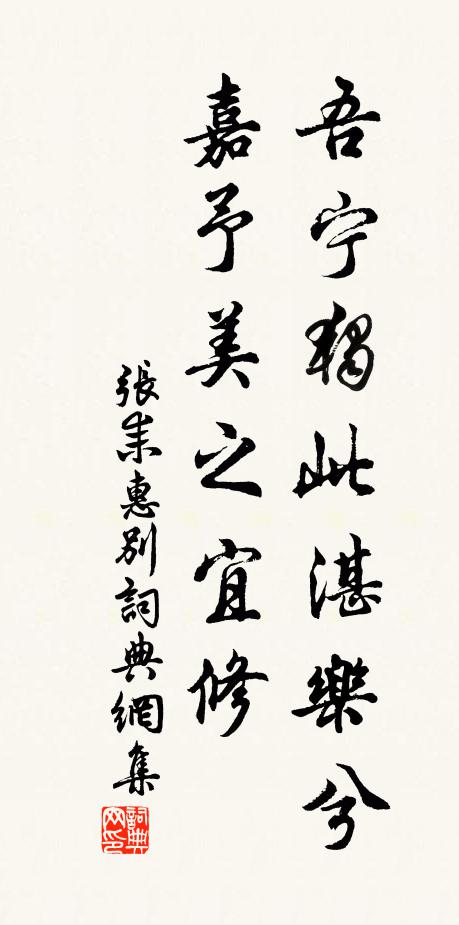 吾宁獨此湛樂兮
嘉予美之宜修
張耒惠別詞典網集
詞典网印